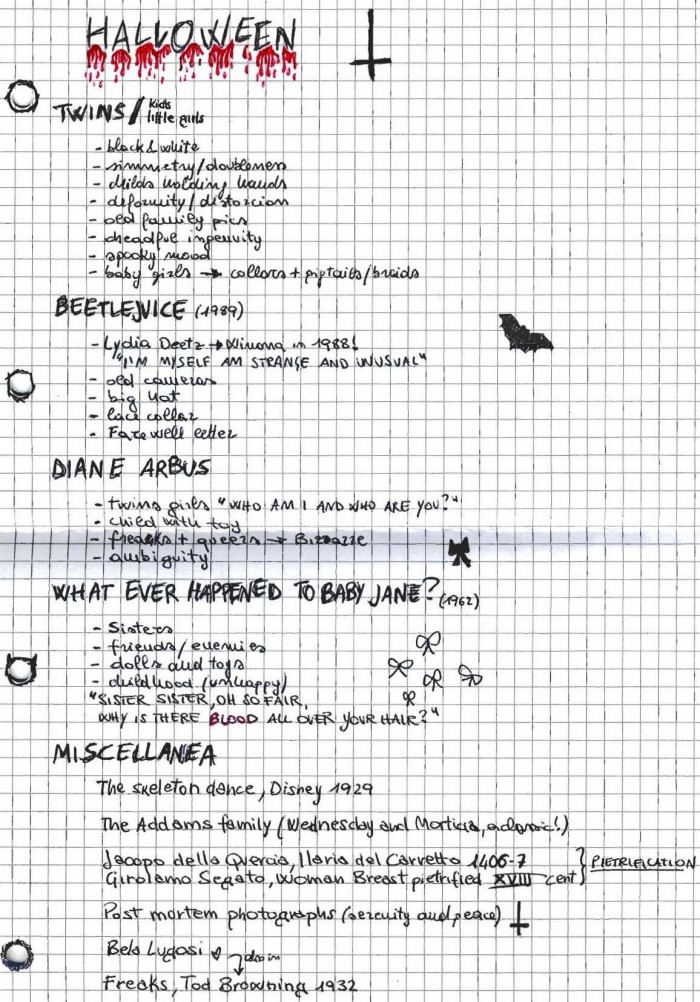 HALLOWEEN
TWINS / kids
little girls
- black & white
- simmetry/doubleness
- childs holding hands
- deformity/distorcion
- old family pics
- dreadful ingenuity
- spooky mood
- baby girls → collars + pigtails/braids
BEETLEJUICE (1989)
- Lydia Deetz → Winona in 1988!
"I'M MYSELF AM STRANGE AND UNUSUAL"
- old cameras
- big hat
- lace collar
- Farewell letter
DIANE ARBUS
- twins girls "WHO AM I AND WHO ARE YOU?"
- child with toy
- freaks + queers → Bizzarre
- ambiguity
WHAT EVER HAPPENED TO BABY JANE? (1962)
- Sisters
- friends/enemies
- dolls and toys
- childhood (unhappy)
"SISTER SISTER, OH SO FAIR,
WHY IS THERE BLOOD ALL OVER YOUR HAIR?"
MISCELLANEA
The skeleton dance, Disney 1929
The Addams family (Wednesday and Morticia,
Jacopo della Quercia, Ilaria del Carretto 1406-7 } PIETRIFICATION
Girolamo Segato, Woman Breast pietrified XVIII cent
Post mortem photographs (serenity and peace)
Bela Lugosi
Freaks, Tod Browning 1932